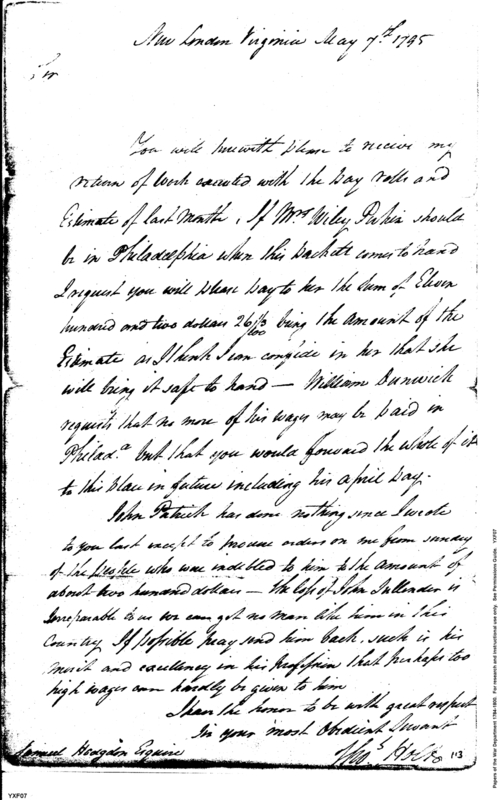 New London Virginia May 7th 1795
Sir
You will herewith please to receive my
return of work executed with the pay rolls and
Estimate of last Month, If Mrs Wiley should
be in Philadelphia when this packett comes to hand
I request you will please pay to her the sum of Eleven
hundred and two dollars 26 1/3/100 being the amount of the
Estimate as I think I can confide in her that she
will bring it safe to hand — William Dunwick
requests that no more of his wages may be paid in
Philada. but that you would forward the whole of it
to this place in future including his april pay.
John Patrick has done nothing since I wrote
to you last except to procure orders on me from sunday
of the people who was indebted to him to the amount of
about two hundred dollars — the loss of John is
Irreparable to us we can get no man like him in this
Country If possible pray send him back, such is his
merit and excellency in his profession that perhaps too
high wages can hardly be given to him
I have the honor to be with great respect
Sir your most Obedient Servant
Samuel Hodgdon Esquire
Thos. Holt
113
YXF07
Papers of the War Department 1784-1800. For research and instructional use only. See Permissions Guide. YXF07